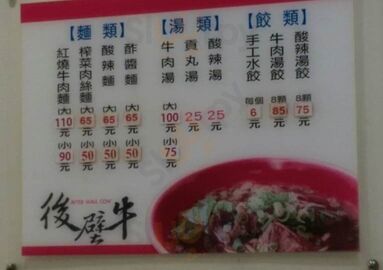 【麵類】
紅燒牛肉麵
(大)
110元
(小)
90元
榨菜肉絲麵
(大)
65元
(小)
50元
酸辣麵
(大)
65元
(小)
50元
酢醬麵
(大)
65元
(小)
50元
【湯類】
牛肉湯
(大)
100元
(小)
75元
貢丸湯
25元
酸辣湯
25元
【餃類】
手工水餃
每個
6元
牛肉湯餃
8顆
85元
酸辣湯餃
8顆
75元
AFTER WALL COW
後壁牛